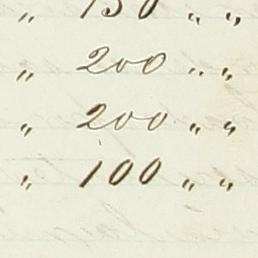 " 150 " "
" 200 " "
" 200 " "
" 100 " "